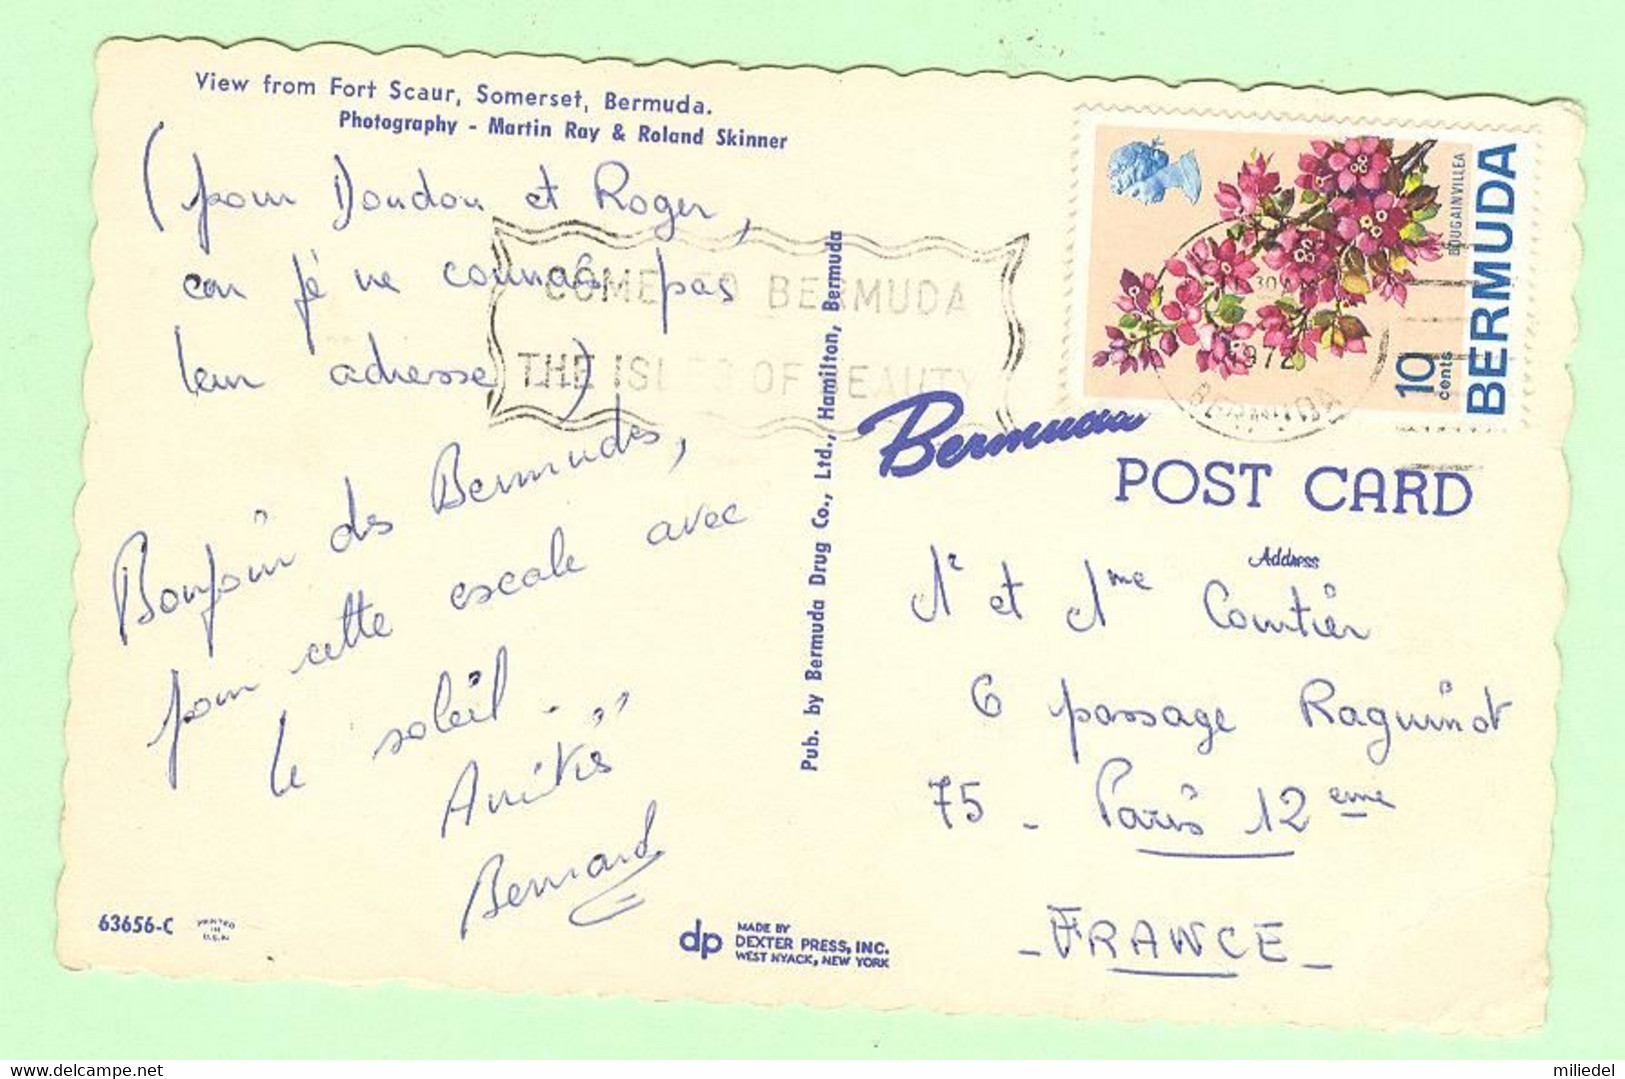 View from Fort Scaur, Somerset, Bermuda.
Photography - Martin Ray & Roland Skinner
(pour Doudou et Roger,
car je ne connais pas
leur adresse)
Bonjour des Bermudes,
pour cette escale avec
le soleil ...
Amitiés
Bernard
63656-C
PRINTED
IN
U.S.A.
dp
MADE BY
DEXTER PRESS, INC.
WEST NYACK, NEW YORK
Pub. by Bermuda Drug Co., Ltd., Hamilton, Bermuda
COME TO BERMUDA
THE ISLES OF BEAUTY
BOUGAINVILLEA
10 cents
BERMUDA
1972
BERMUDA
Bermuda
POST CARD
Address
Mr et Mme Courtier
6 passage Raguinot
75 - Paris 12 eme
- FRANCE -
miliedel